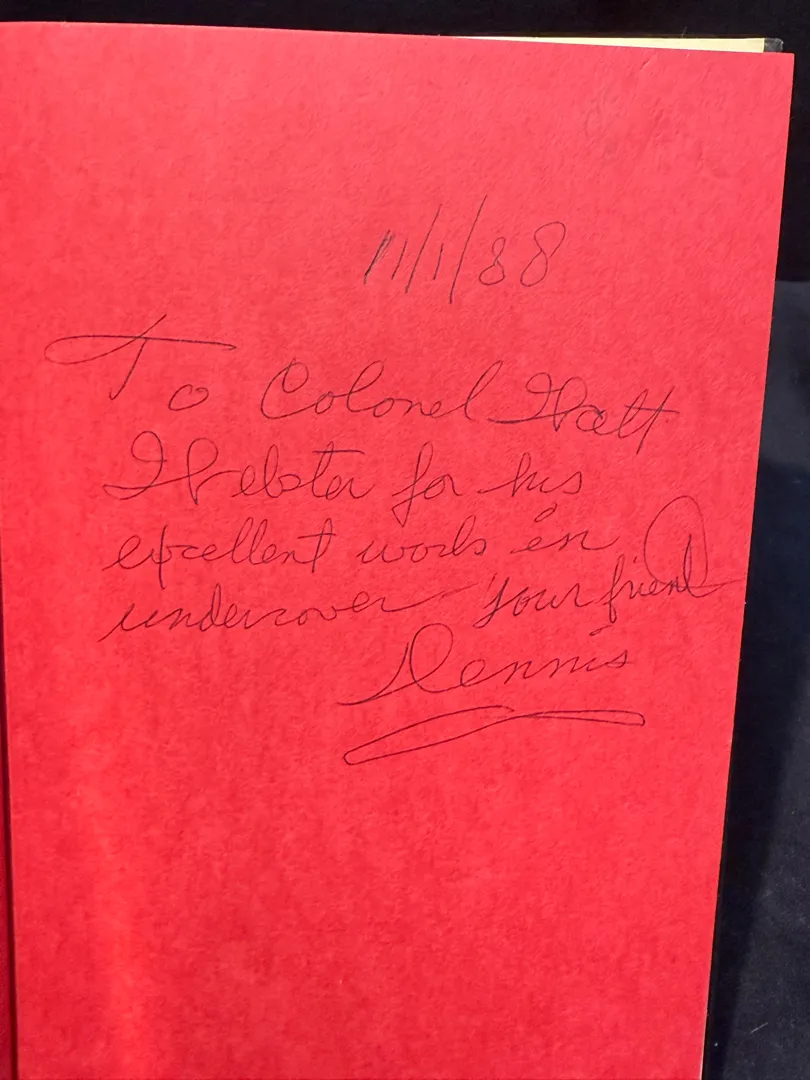 11/1/88
To Colonel Walt
Webster for his
excellent work in
undercover - Your friend
Dennis